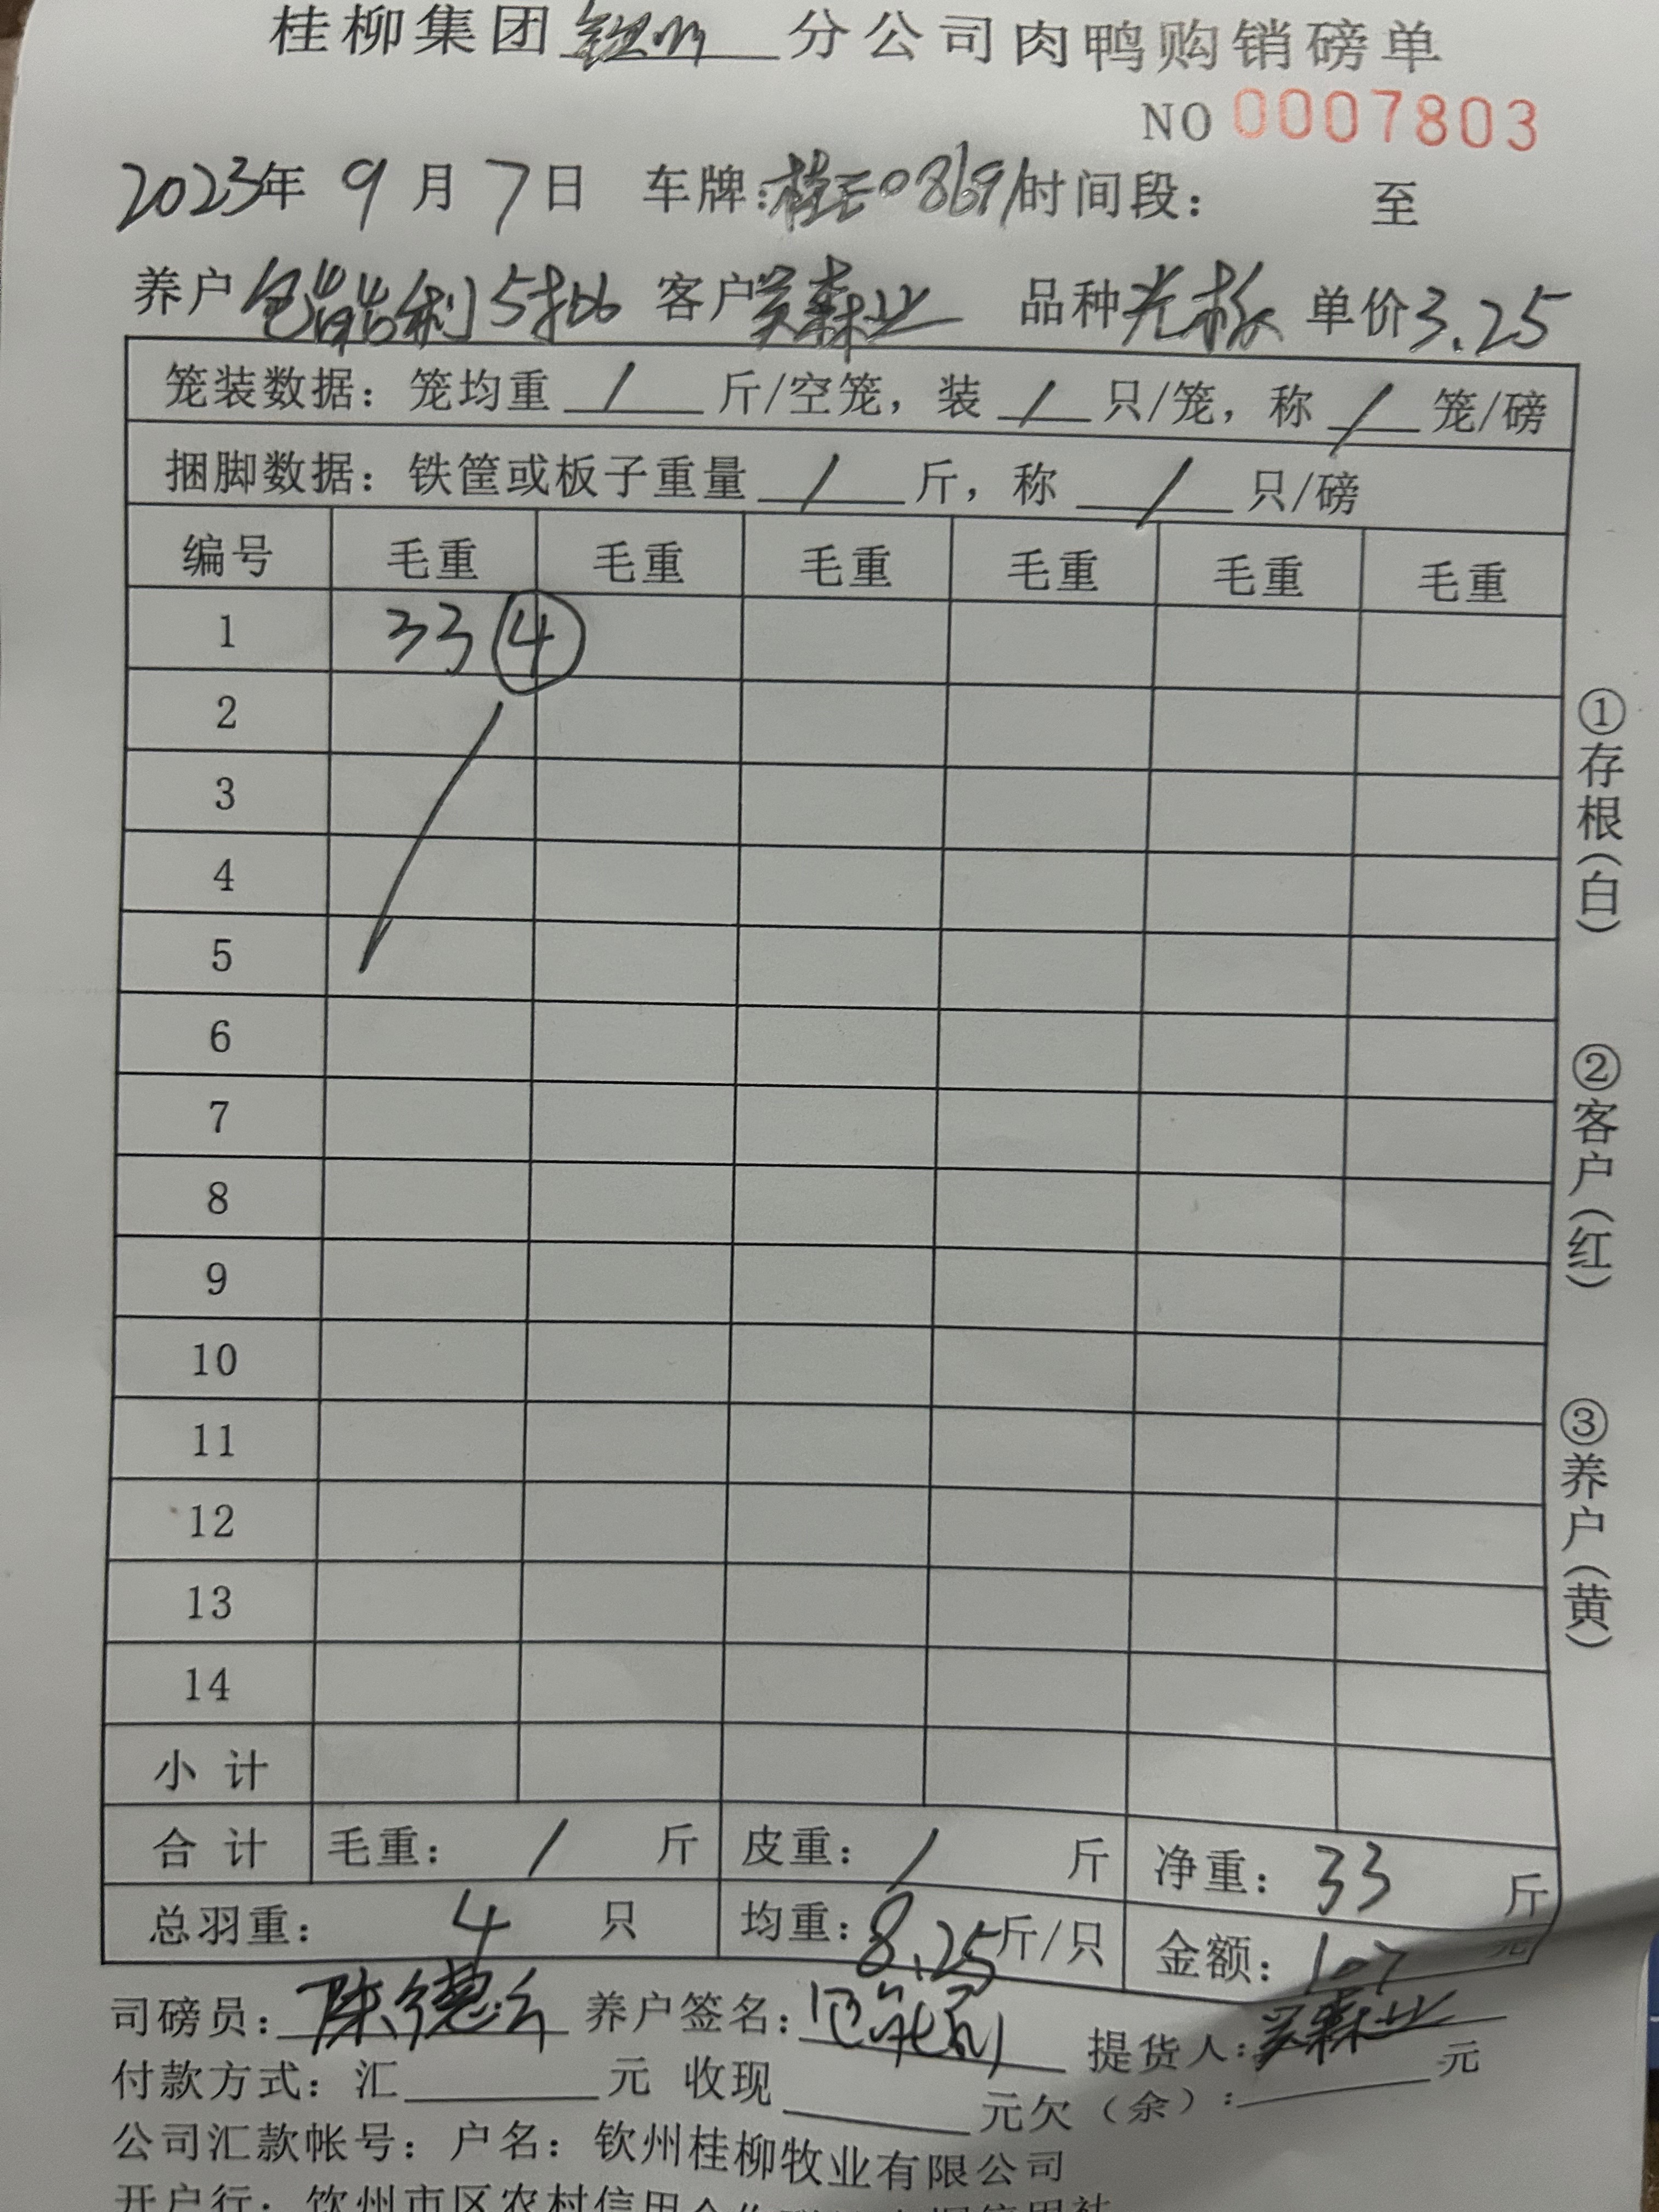 桂柳集团钦州分公司肉鸭购销磅单
NO 0007803
2023年 9月 7日 车牌: 时间段: 至
养户 5批 客户 吴森业 品种 单价3.25
笼装数据: 笼均重 / 斤/空笼, 装 / 只/笼, 称 / 笼/磅
捆脚数据: 铁筐或板子重量 / 斤, 称 / 只/磅
编号 毛重 毛重 毛重 毛重 毛重 毛重
1 33 ④
2
3
4
5
6
7
8
9
10
11
12
13
14
小计
合计 毛重: / 斤 皮重: / 斤 净重: 33 斤
总羽重: 4 只 均重: 8.25 斤/只 金额: 107 元
司磅员: 陈德 养户签名: 提货人: 吴森业
付款方式: 汇 元 收现 元欠(余): 元
公司汇款帐号: 户名: 钦州桂柳牧业有限公司
开户行: 钦州市区农村信用
①存根(白)
②客户(红)
③养户(黄)